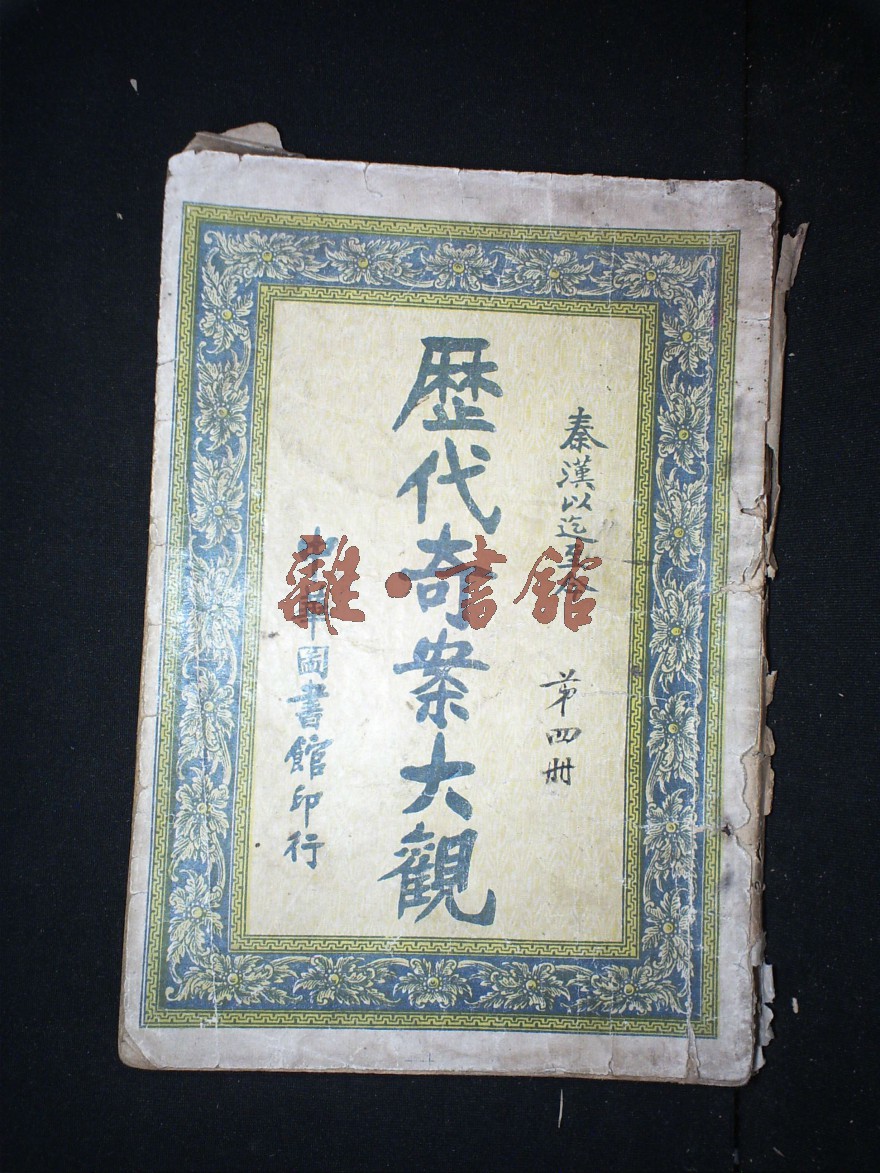 秦漢以迄至今
第四冊
歷代奇案大觀
中華圖書館印行
雜·書館